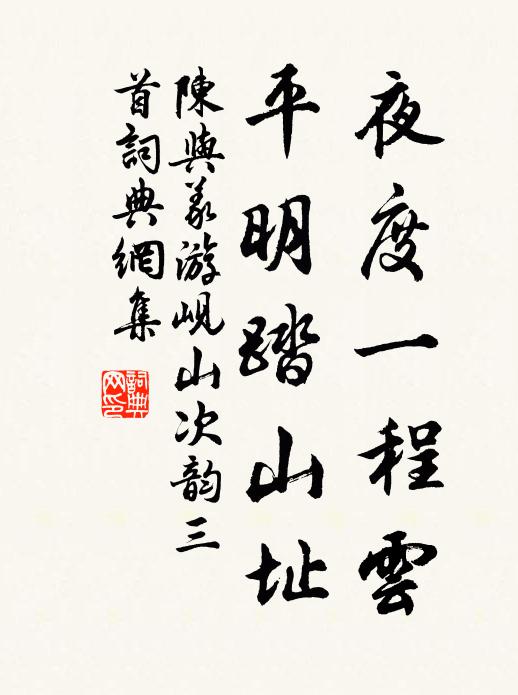 夜度一程雲
平明踏山址
陳與義游峴山次韵三
首詞典網集
詞典
网印